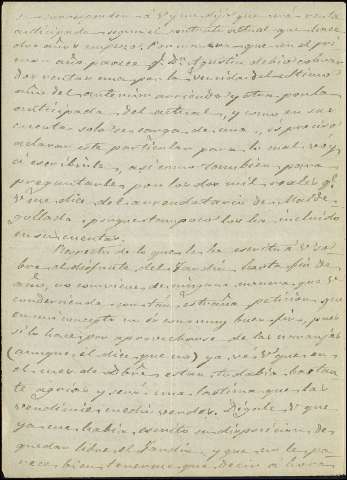 corresponden á Vd y me dijo que una renta
anticipada segun el contrato actual que hace
dos años empezó. Por manera que en el pri
mer año parece q.e D.n Agustin debio cobrar
dos rentas una por la vencida del último
año del anterior arriendo y otra por la
anticipada del actual, y como en su
cuenta solo se carga de una, es preciso
aclarar este particular para lo cual voy
á escribirle, así como tambien para
preguntarle por los dos mil reales q.e
Vd me dice del arrendatario de Malde
gollada, porque tampoco los ha incluido
en su cuenta.
Respecto de lo que le ha escrito á Vd so
bre el disfrute del Jardin hasta fin de
año, no conviene de ninguna manera que Vd
condescienda con tan estraña peticion que
en mi concepto no es con muy buen fin, pues
sólo lo hace por aprovecharse de las naranjas
(aunque él dice que no) ya ve Vd que en
el mes de Dbre estan todavia bastan
te agrias y será una lastima que las
vendimie en estar verdes. Dígale Vd que
ya me habia escrito su disposicion de
quedar libre el Jardin, y que no le pa
rece bien tenerme que decir ahora